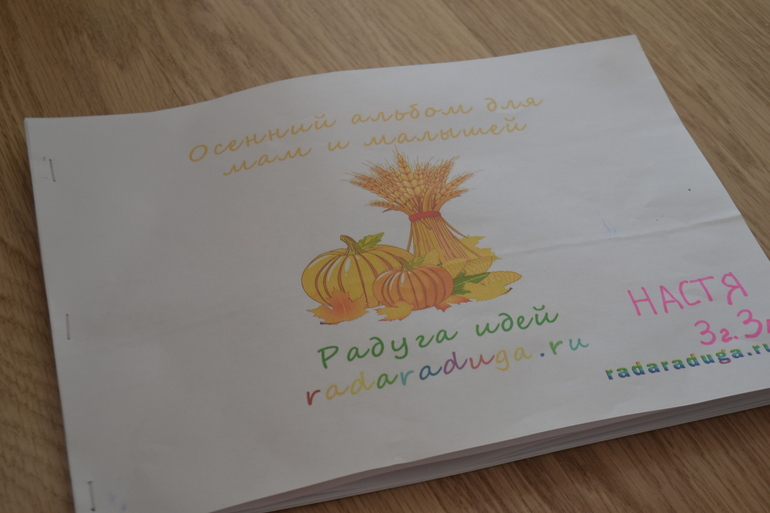 Осенний альбом для
мам и малышей
Радуга идей
radaraduga.ru
НАСТЯ
3г. 3
radaraduga.ru